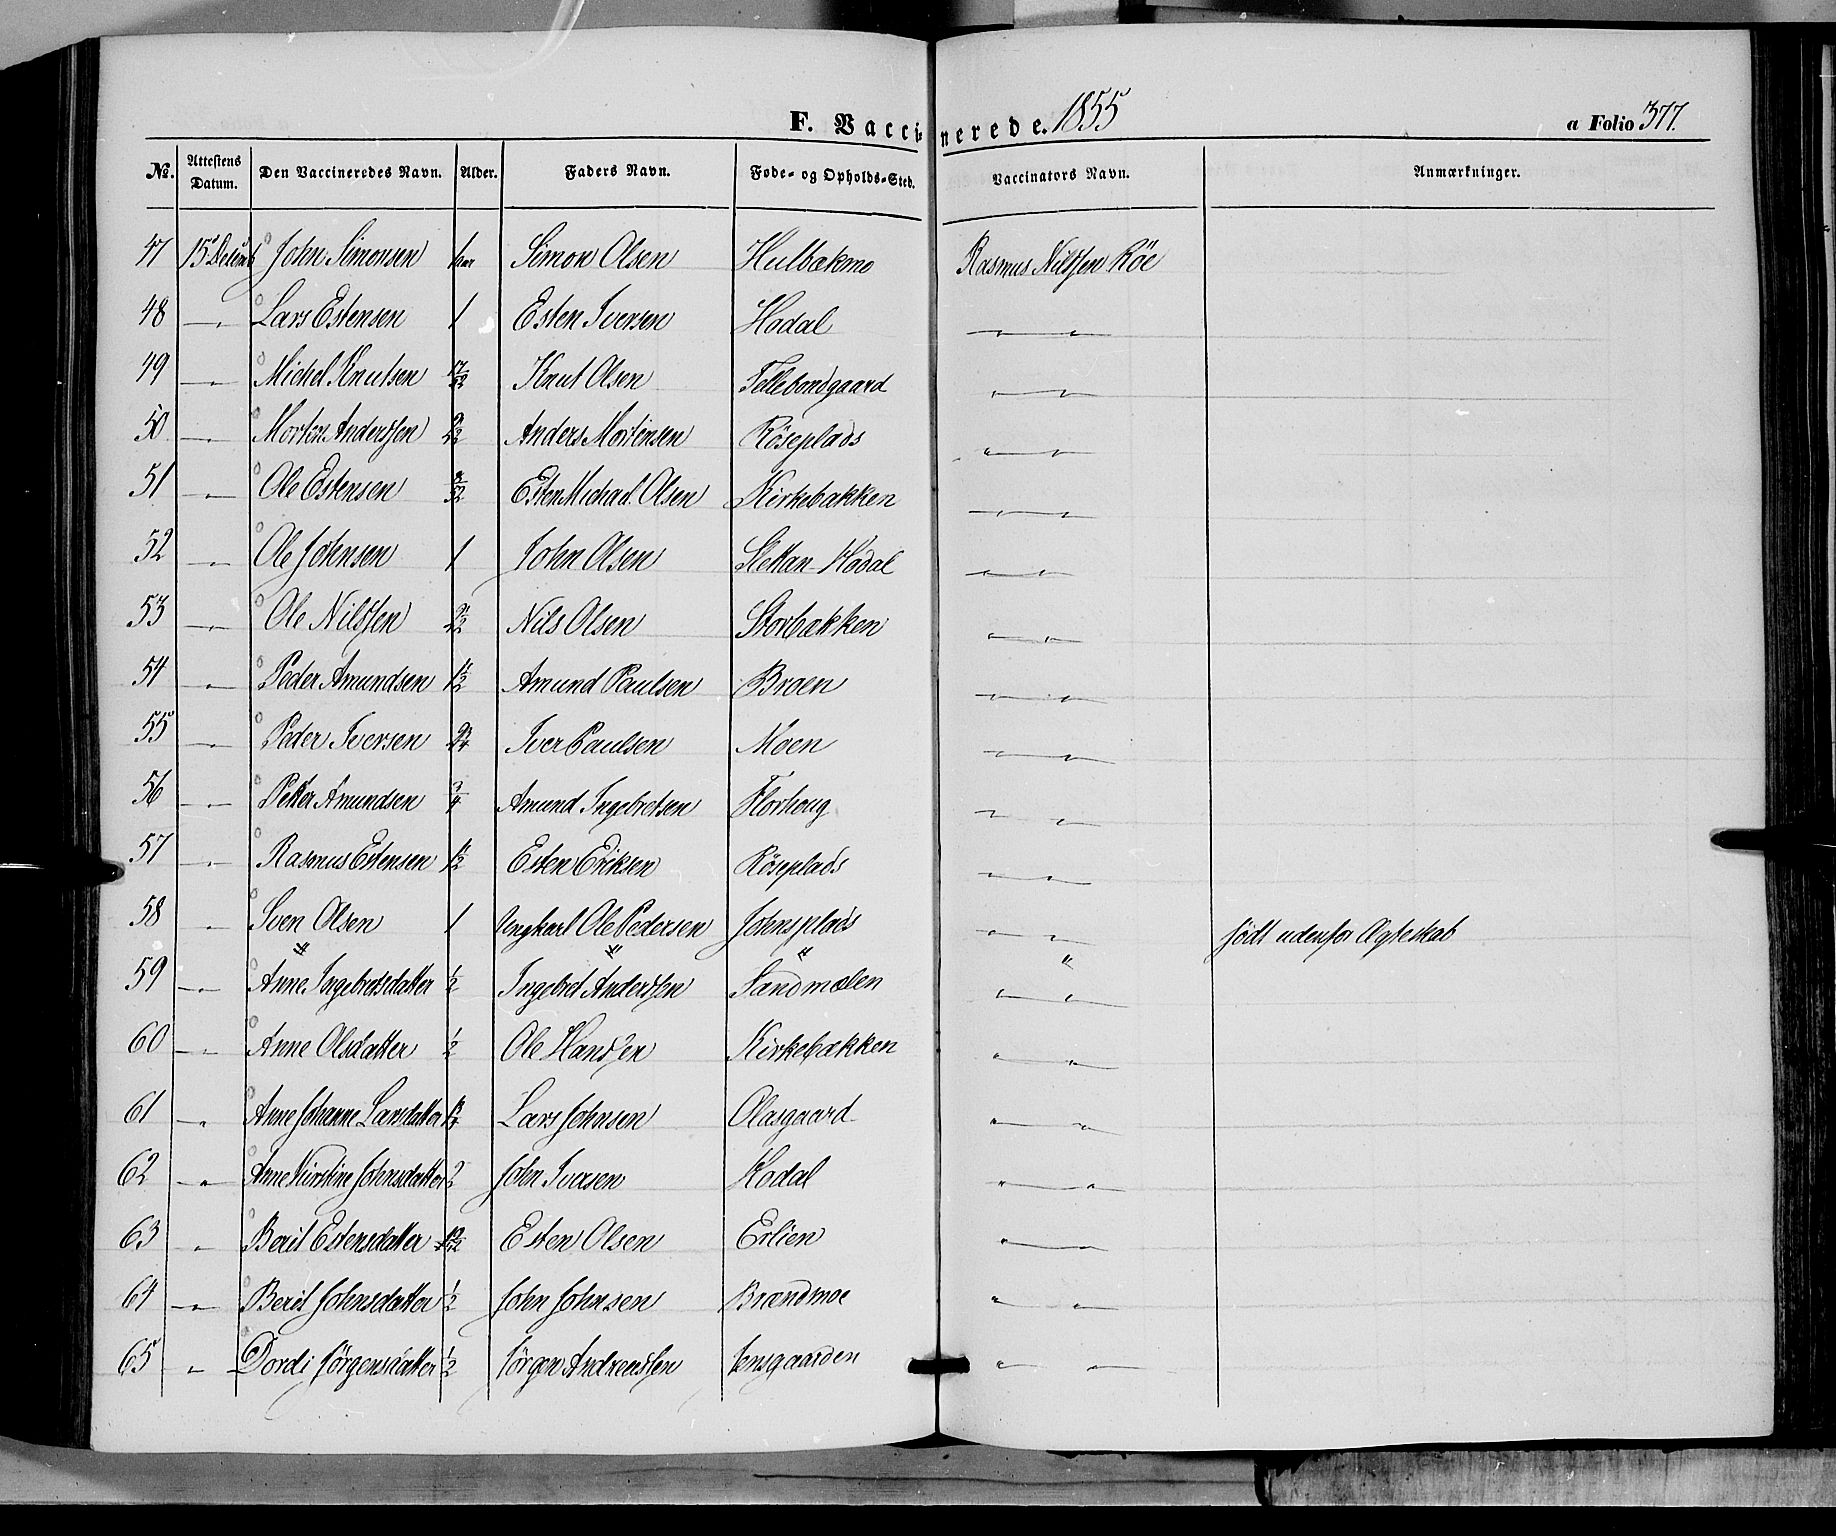 F. Vaccinerede. 1855
a Folio 377.
No. Attestens Datum. Den Vaccineredes Navn. Alder. Faders Navn. Føde- og Opholds-Sted. Vaccinators Navn. Anmærkninger.
47 15 John Simonsen 1 aar Simon Olsen Hulbækmo Rasmus Nilssen Röe
48 " Lars Estensen 1 Esten Iversen Hodal " "
49 " Michel Knutsen Knut Olsen " "
50 " Morten Anderssen Anders Mortensen Röseplads " "
51 " Ole Estensen Esten Michael Olsen Kirkebækken " "
52 " Ole Johnsen 1 John Olsen Slettan Hodal " "
53 " Ole Nilssen Nils Olsen Storbækken " "
54 " Peder Amundsen 1½ Amund Paulsen Broen " "
55 " Peder Iversen Iver Paulsen Moen " "
56 " Petter Amundsen ¾ Amund Ingebretsen Florhoug " "
57 " Rasmus Estensen 1½ Esten Eriksen Röseplads " "
58 " Sven Olsen 1 Ungkarl Ole Pedersen Johnsplads " " født udenfor Ægteskab
" " " "
59 " Anne Ingebretsdatter ½ Ingebret Anderssen Sandmælen " "
60 " Anne Olsdatter ½ Ole Hanssen Kirkebækken " "
61 " Anne Johanne Larsdatter Lars Johnsen Olasgaard " "
62 " Anne Kirstine Johnsdatter 2 John Iversen Hodal " "
63 " Berit Estensdatter Esten Olsen Erlien " "
64 " Berit Johnsdatter ½ John Johnsen Brændmoe " "
65 " Dordi Jörgensdatter ½ Jörgen Andreassen Jensgaarden " "